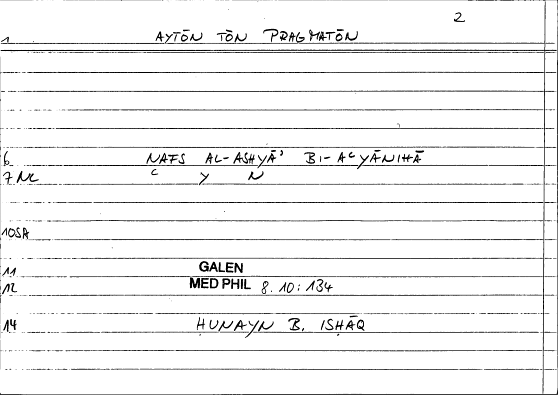 2
1 AYTŌN TŌN PRAGMATŌN
6 NAFS AL-ASHYĀʾ BI-AʿYĀNIHĀ
7 NL ʿ Y N
10SA
11 GALEN
12 MED PHIL 8.10:134
14 ḤUNAYN B. ISḤĀQ